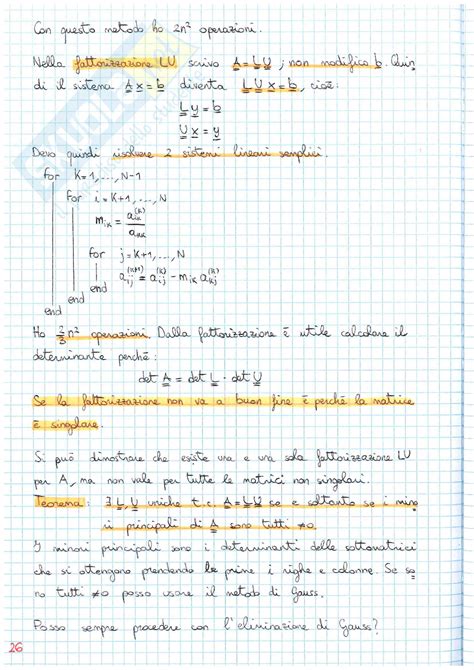 Con questo metodo ho 2n² operazioni.
Nella fattorizzazione LU scrivo A=LU; non modifico b. Quin
di il sistema Ax=b diventa LUx=b, cioè:
Ly=b
Ux=y
Devo quindi risolvere 2 sistemi lineari semplici.
for K=1,...,N-1
for i=K+1,...,N
m_ik = a_ik^(k) / a_kk
for j=K+1,...,N
a_ij^(k+1) = a_ij^(k) - m_ik a_kj^(k)
end
end
end
Ho 2/3 n² operazioni. Dalla fattorizzazione è utile calcolare il
determinante perché:
det A = det L · det U
Se la fattorizzazione non va a buon fine è perché la matrice
è singolare.
Si può dimostrare che esiste una e una sola fattorizzazione LU
per A, ma non vale per tutte le matrici non singolari.
Teorema: ∃ L, U uniche t.c. A=LU se e soltanto se i mino
ri principali di A sono tutti ≠0.
I minori principali sono i determinanti delle sottomatrici
che si ottengono prendendo le prime i righe e colonne. Se so
no tutti ≠0 posso usare il metodo di Gauss.
Posso sempre procedere con l'eliminazione di Gauss?
26